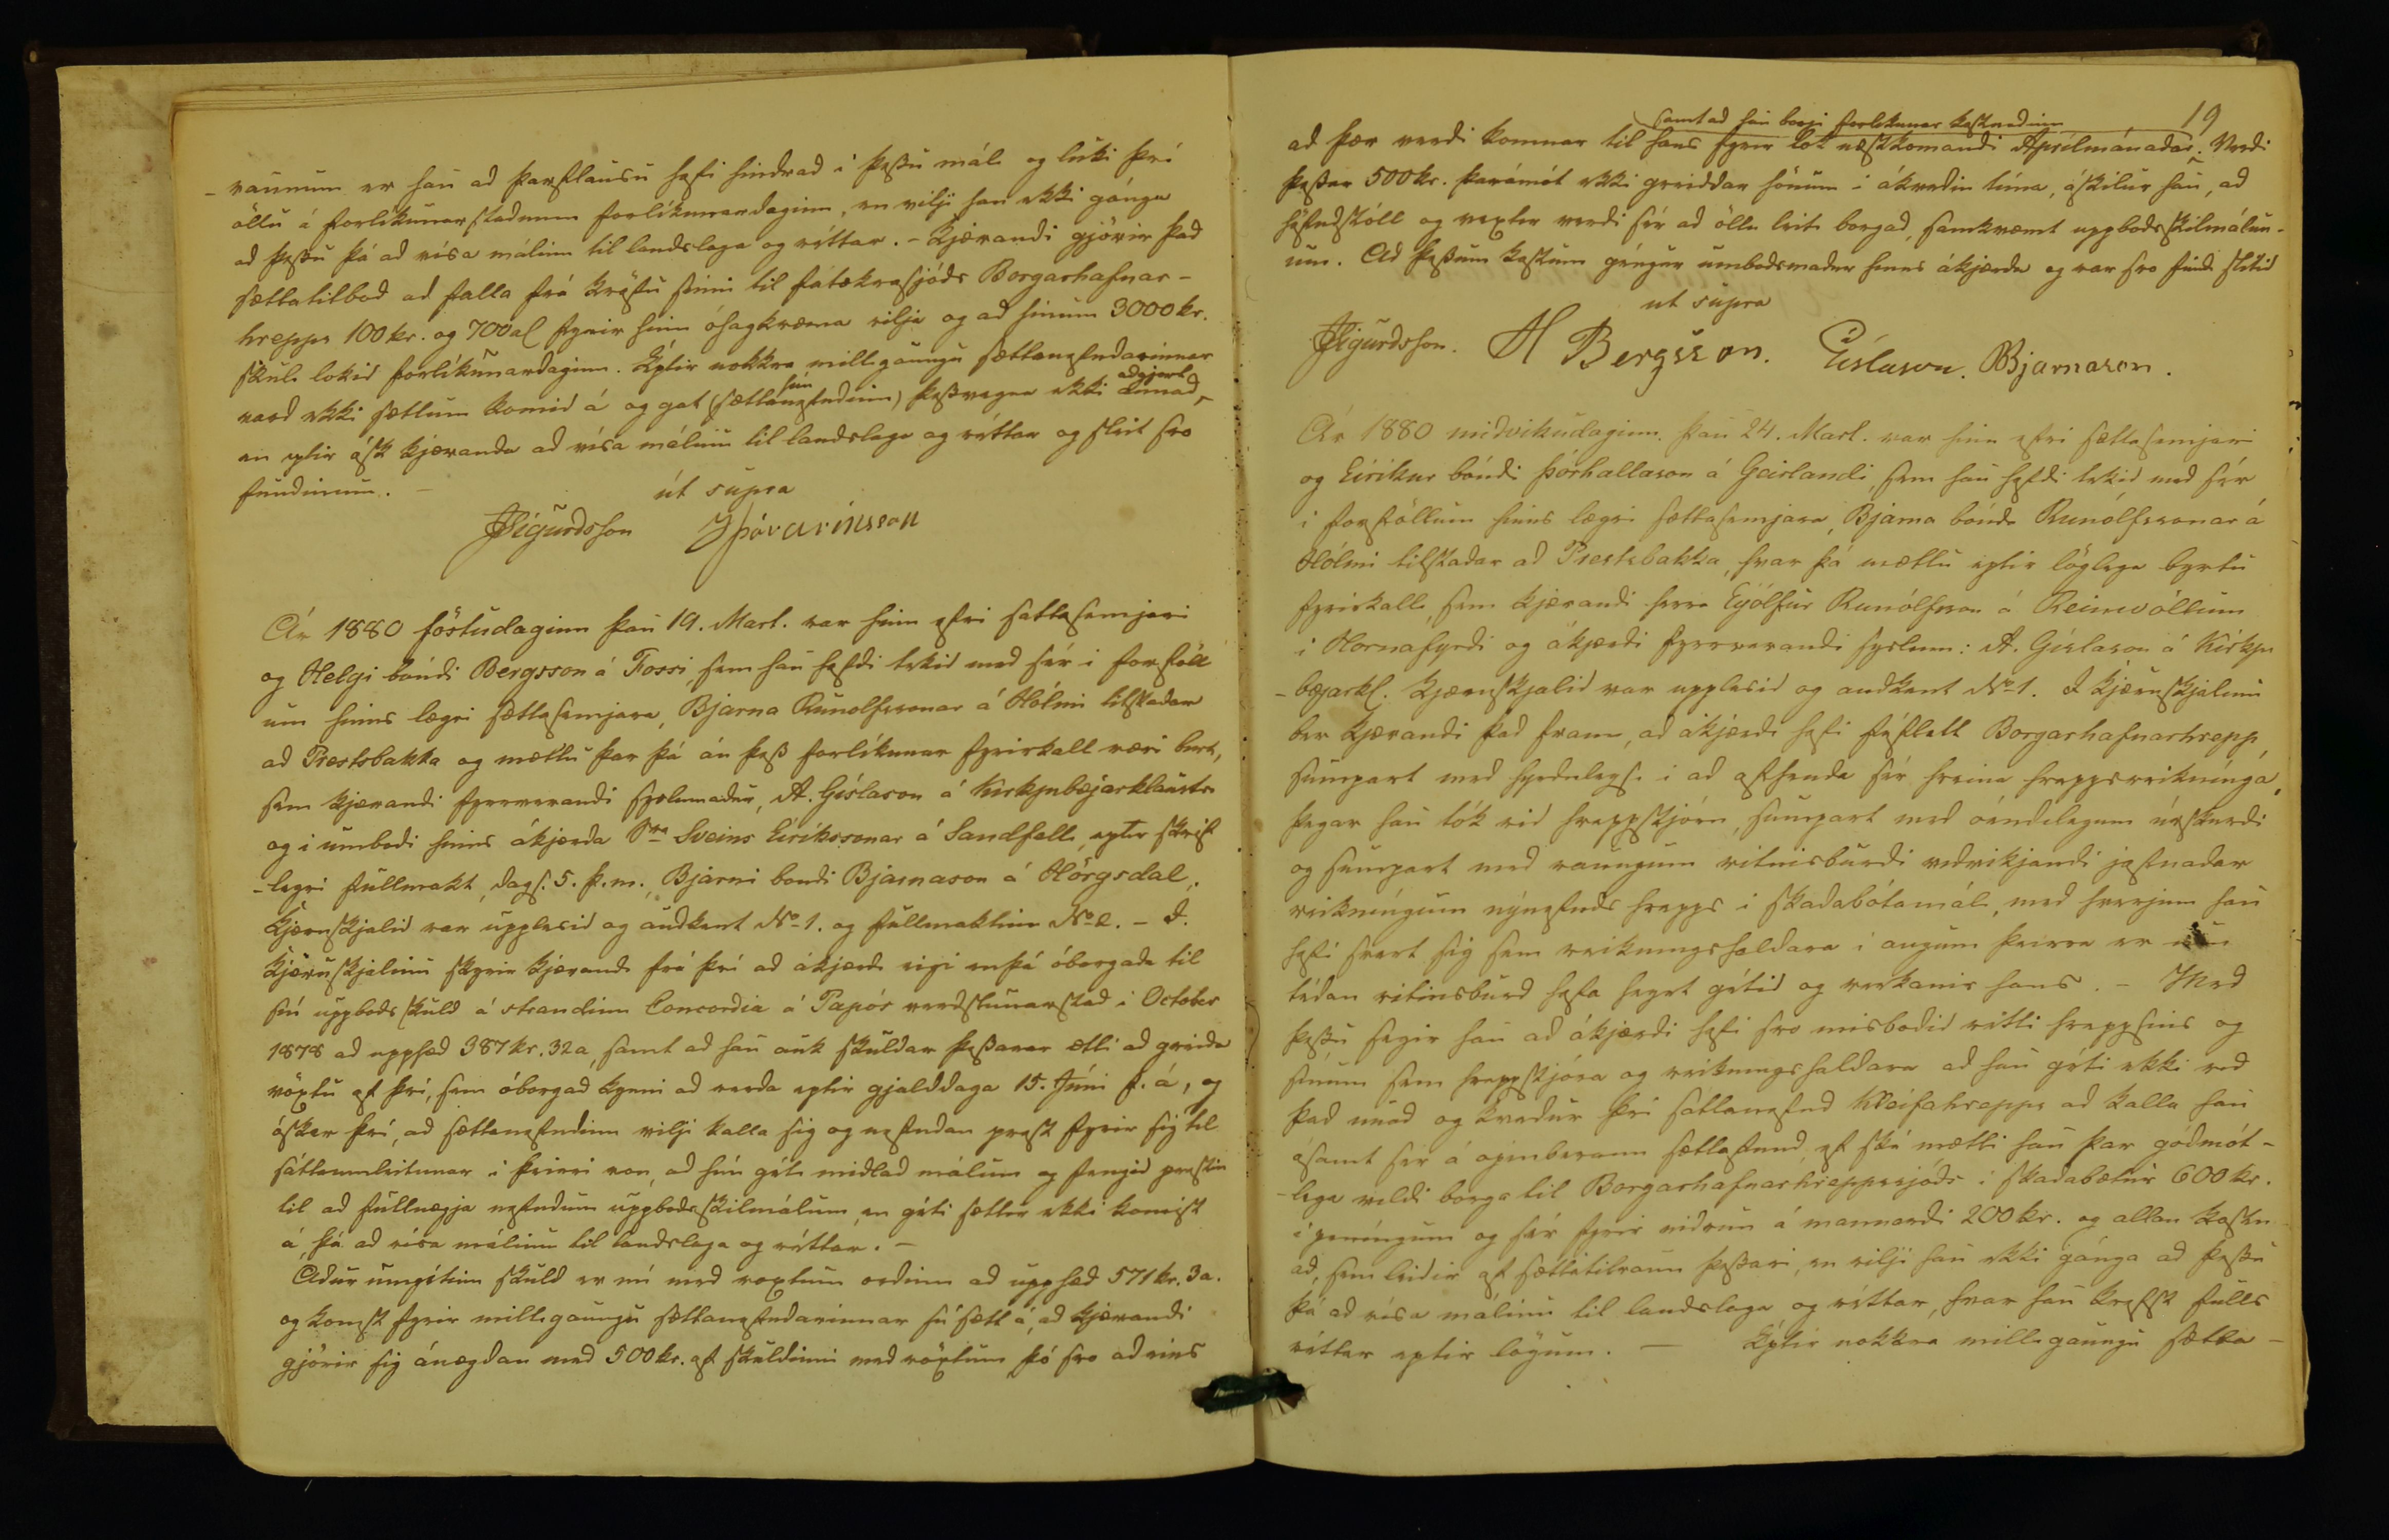 -raunum er han að þarflausu hafi hindrað í þessu máli og lúki því
öllu á forlíkunarstaðnum forlíkunardaginn, en vilji han ekki gánga
að þessu þá að vísa málinu til landslaga og réttar. - Kjærandi gjörir það
sættatilboð að falla frá kröfu sinni til fátækrasjóðs Borgarhafnar-
hrepps 100 kr. og 700 al fyrir hinn óhagkvæma vilja og að hinum 3000 kr.
skuli lokið forlíkunardaginn. Eptir nokkra milligaungu sættanefndarinnar
varð ekki sættum komið á og gat hún (sættanefndin) þessvegna ekki aðgjört annað,
en eptir ósk kjæranda að vísa málinu til landslaga og réttar og sleit svo
fundinum. -
út supra
JSigurdsson JÞórarinsson
Ár 1880 föstudaginn þan 19. Mart. var hinn efri sáttasemjari
og Helgi bóndi Bergsson á Fossi, sem han hafði tekið með sér í forföll
um hins lægri sættasemjara, Bjarna Runolfssonar á Hólmi tilstaðar
að Prestsbakka og mættu þar þá án þess forlíkunar fyrirkall væri birt,
sem kjærandi fyrrverandi syslumaður, A. Gíslason á Kirkjubæjarklaustri
og í umboði hins ákjærða Sra Sveins Eiríkssonar á Sandfelli, eptir skrif
-legri fullmakt, dags. 5. þ.m., Bjarni bondi Bjarnason á Hörgsdal.
Kjæruskjalið var upplesið og auðkent No 1. og fullmaktin No 2. - Í
Kjæruskjalinu skyrir kjærandi frá því að ákjærði eigi enþá óborgaða til
sín uppboðsskuld á strandinu Concordia á Papós verdslunarstað í October
1878 að upphæð 387 kr. 32 a, samt að han auk skuldar þessarar ætti að greiða
vöxtu af því, sem óborgað kynni að verða eptir gjalddaga 15. Júní f. á, og
óskar því, að sættanefndin vilji kalla sig og nefndan prest fyrir sig til
sáttaumleitunar í þeirri von, að hún géti miðlað málum og fengið prestin
til að fullnægja nefndum uppboðsskilmálum, en géti sættir ekki komist
á, þá að vísa málinu til landslaga og réttar. -
Aður umgétin skuld er nú með voxtum orðinn að upphæð 571 kr. 3 a.
og komst fyrir milligaungu sættanefndarinnar sú sætt á, að kjærandi
gjörir sig ánægðan með 500 kr. af skuldinni með vöxtum þó svo aðeins
19
samt að han borgi forlikunar kostnaðinn
að þær verði komnar til hans fyrir lok næstkomandi Aprílmánaðar. Verði
þessar 500 kr. þarámót ekki greiddar hönum í ákveðin tíma, áskilur han, að
höfuðstóll og vextir verði sér að öllu leiti borgað, samkvæmt uppboðsskilmálun-
um. Að þessum kostum géngur umboðsmaður hins ákjærða og var svo fundi slitið
ut supra
JSigurdsson. H Bergsson. Gíslason. Bjarnason.
Ár 1880 miðvikudaginn þan 24. Mart. var hinn efri sættasemjari
og Eiríkur bóndi Þórhallason á Geirlandi, sem han hafði tekið með sér
í forföllum hins lægri sættasemjara, Bjarna bónda Runólfssonar á
Hólmi tilstaðar að Prestsbakka, hvar þá mættu eptir löglega byrtu
fyrirkalli, sem kjærandi herra Eyólfur Runólfsson á Reinivöllum
í Hornafyrði og ákjærði fyrrverandi syslum: A. Gíslason á Kirkju
-bæjarkl. Kjæruskjalið var upplesið og auðkent No 1. Í kjæruskjalinu
ber kjærandi það fram, að ákjærði hafi féflett Borgarhafnarhrepp,
sumpart með hyrðuleysi í að afhenda sér hreina hreppsreiknínga,
þegar han tók við hreppstjórn, sumpart með óendilegum úrskurði
og sumpart með raungum vitnisburði viðvikjandi jafnaðar
reikníngum nýnefnds hrepps í skaðabótamáli, með hverjum han
hafi svert sig sem reikningshaldara í augum þeirra er um
téðan vitinsburð hafa heyrt gétið og verkanir hans. - Með
þessu segir han að ákjærði hafi svo misboðið rétti hreppsins og
sínum sem hreppstjóra og reikningshaldara að han géti ekki við
það unað og kveður því sáttanefnd Kleifahrepps að kalla han
ásamt sér á opinberann sættafund, ef ské mætti han þar góðmót-
-lega vildi borga til Borgarhafnarhreppssjóðs í skaðabætur 600 kr.
í peníngum og sér fyrir níðrun á mannorði 200 kr. og allan kostn-
að, sem leiðir af sættatilraun þessari, en vilji han ekki gánga að þessu
þá að vísa málinu til landslaga og réttar, hvar han krefst fulls
réttar eptir lögum. - Eptir nokkra milligaungu sætta-